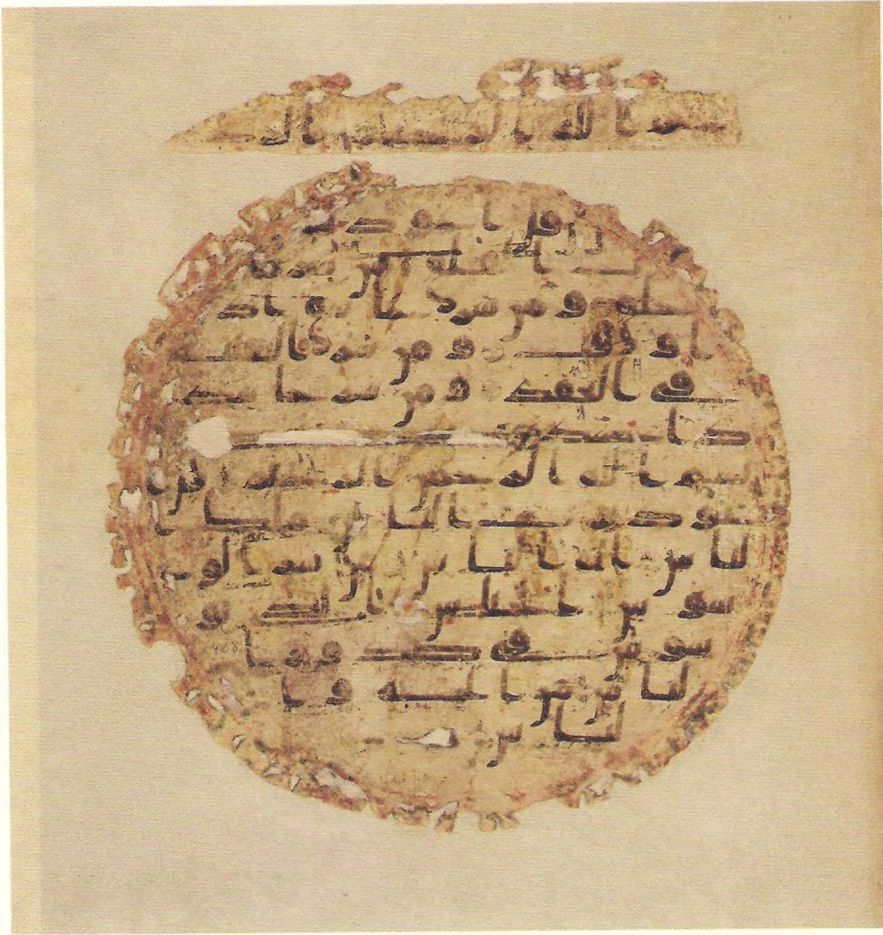 بسم الله الرحمن الرحيم
قل اعوذ بر
ب الفلق من شر ما
خلق و من شر غاسق اذ
ا وقب و من شر النفثت
في العقد و من شر حاسد
اذا حسد
بسم الله الرحمن الرحيم قل
اعوذ برب الناس ملك ا
لناس اله الناس من شر الو
سوس الخناس الذي يو
سوس في صدور ا
لناس من الجنة و ا
لناس